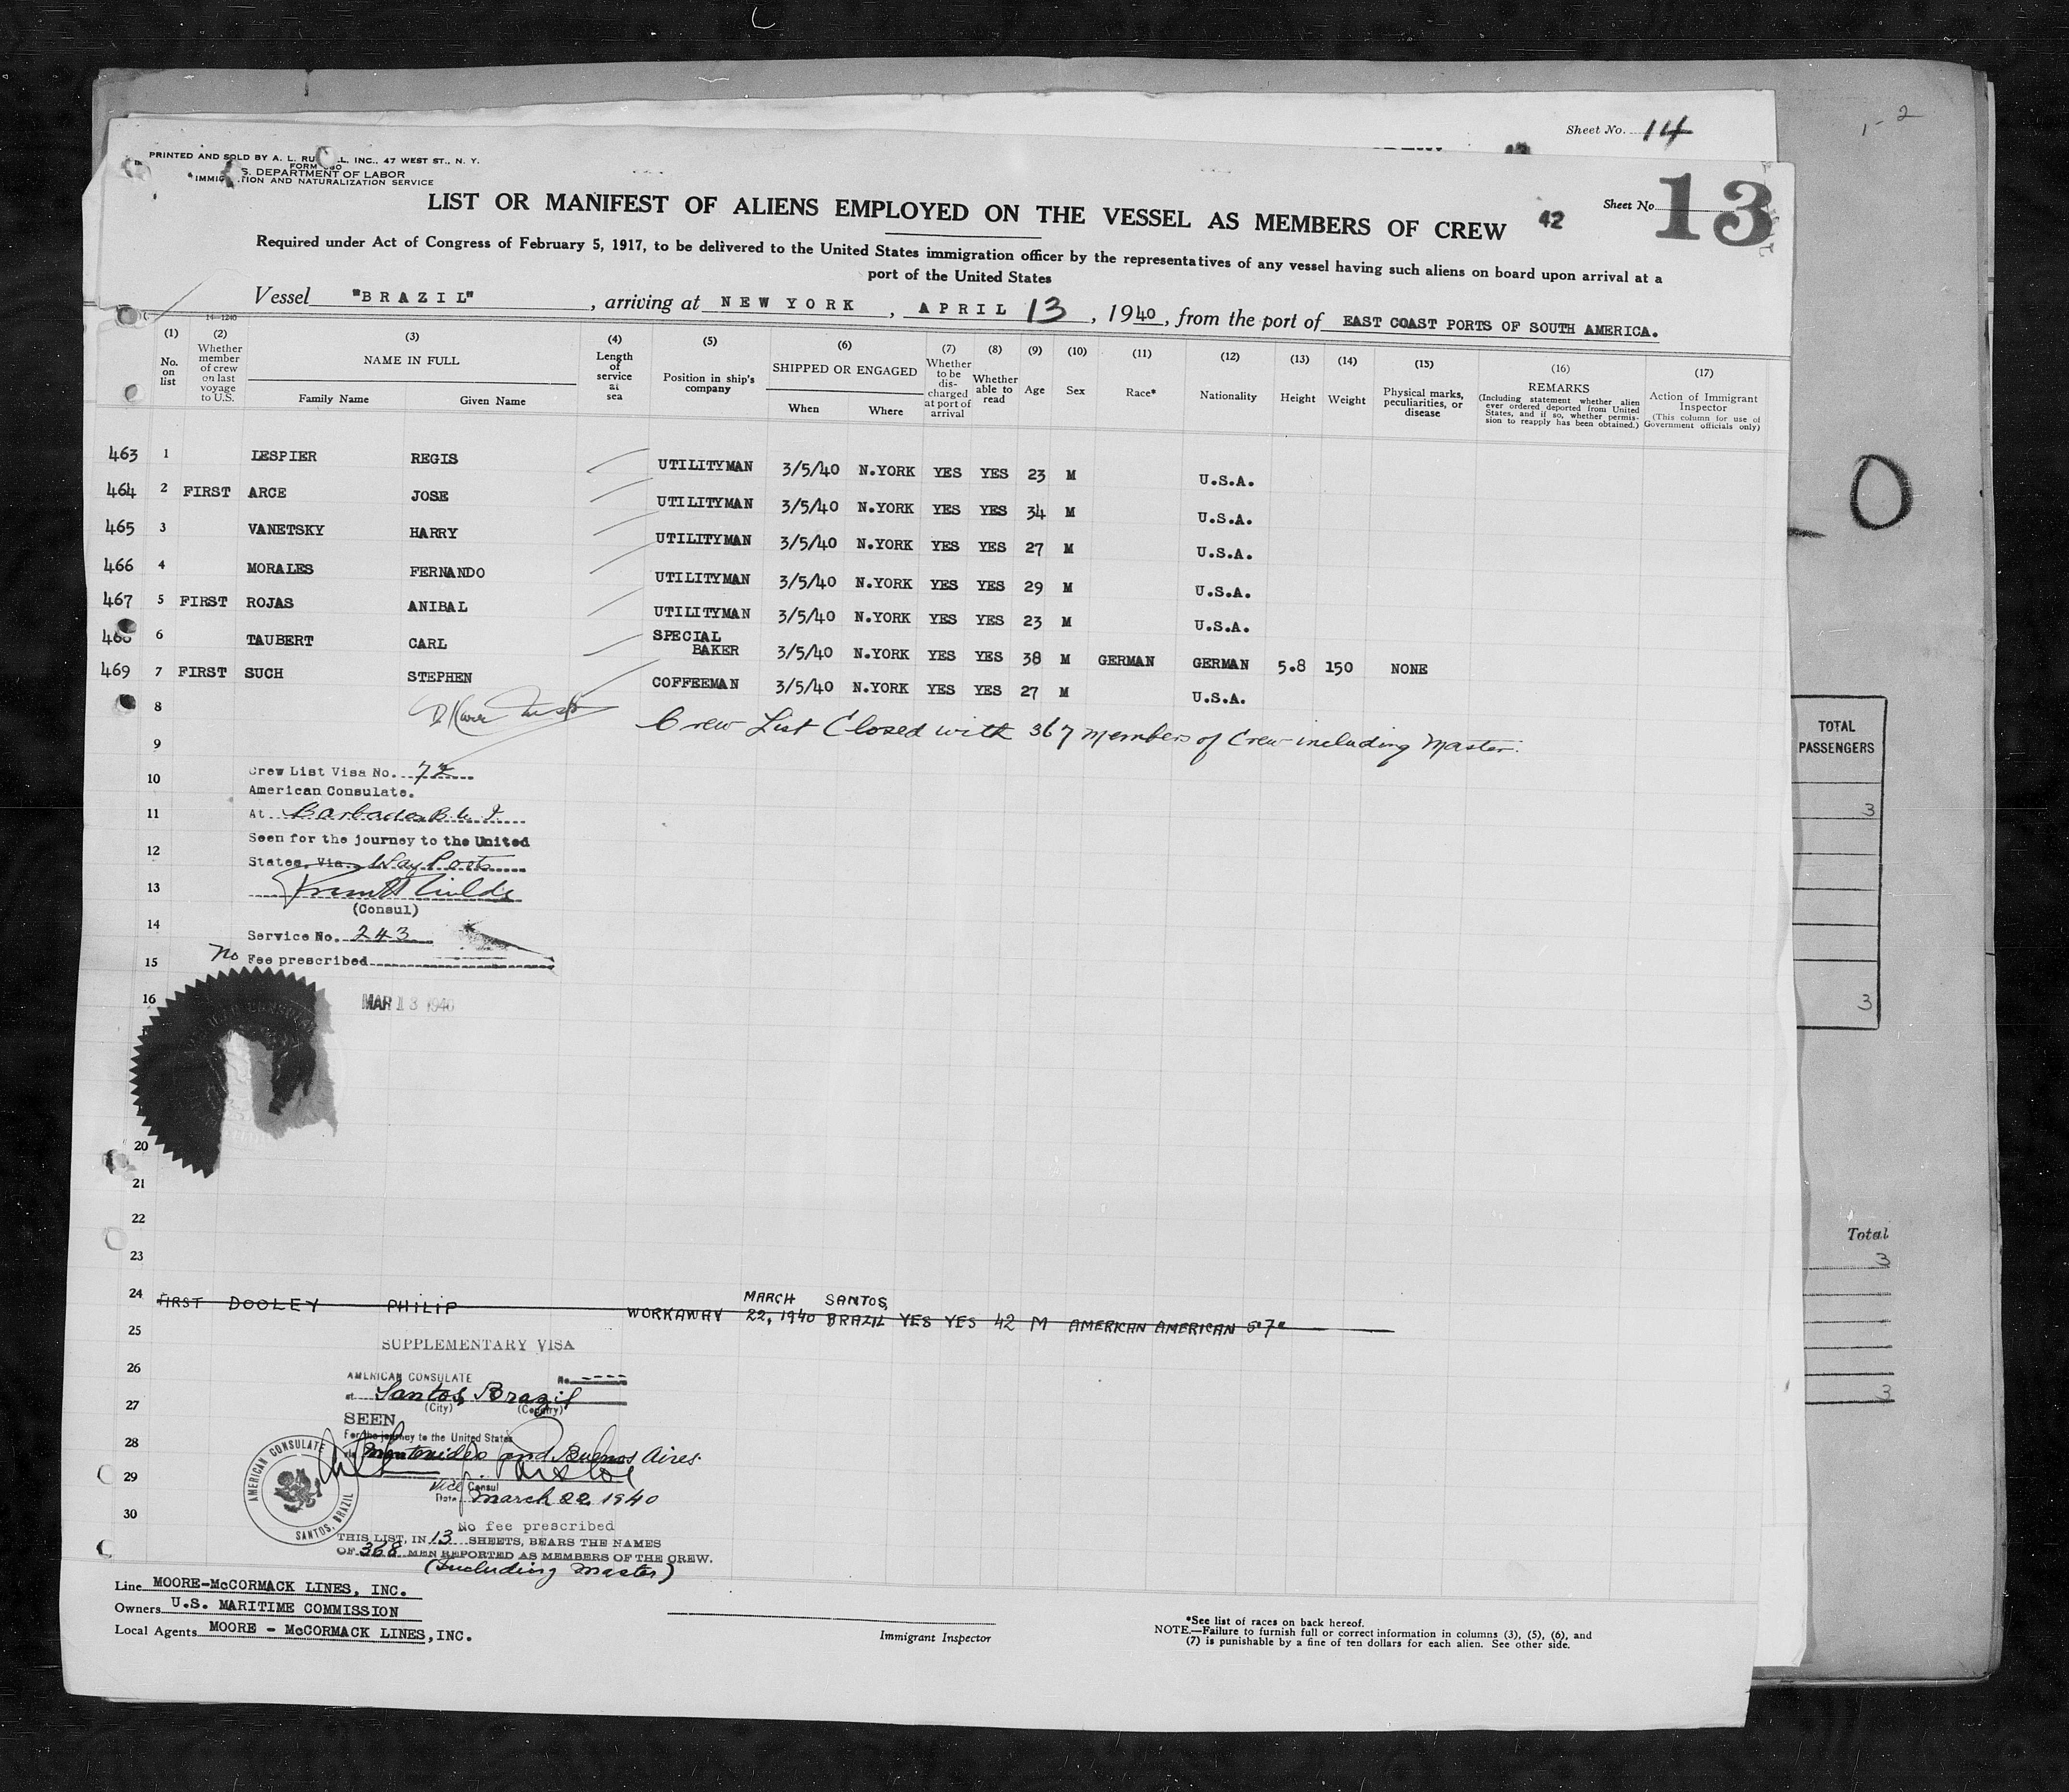 1- 2
Sheet No. 14
PRINTED AND SOLD BY A. L. RU L, INC., 47 WEST ST., N. Y.
FORM
S. DEPARTMENT OF LABOR
IMMIG TION AND NATURALIZATION SERVICE
Sheet No. 13
LIST OR MANIFEST OF ALIENS EMPLOYED ON THE VESSEL AS MEMBERS OF CREW 42
Required under Act of Congress of February 5, 1917, to be delivered to the United States immigration officer by the representatives of any vessel having such aliens on board upon arrival at a
port of the United States
Vessel "BRAZIL", arriving at NEW YORK, APRIL 13, 1940, from the port of EAST COAST PORTS OF SOUTH AMERICA.
14-1240
(1) No. on list
(2) Whether member of crew on last voyage to U.S.
(3) NAME IN FULL
Family Name Given Name
(4) Length of service at sea
(5) Position in ship's company
(6) SHIPPED OR ENGAGED
When Where
(7) Whether to be dis-charged at port of arrival
(8) Whether able to read
(9) Age
(10) Sex
(11) Race*
(12) Nationality
(13) Height
(14) Weight
(15) Physical marks, peculiarities, or disease
(16) REMARKS
(Including statement whether alien ever ordered deported from United States, and if so, whether permis-sion to reapply has been obtained.)
(17) Action of Immigrant Inspector
(This column for use of Government officials only)
463 1 LESPIER REGIS UTILITYMAN 3/5/40 N.YORK YES YES 23 M U.S.A.
464 2 FIRST ARCE JOSE UTILITYMAN 3/5/40 N.YORK YES YES 34 M U.S.A.
465 3 VANETSKY HARRY UTILITYMAN 3/5/40 N.YORK YES YES 27 M U.S.A.
466 4 MORALES FERNANDO UTILITYMAN 3/5/40 N.YORK YES YES 29 M U.S.A.
467 5 FIRST ROJAS ANIBAL UTILITYMAN 3/5/40 N.YORK YES YES 23 M U.S.A.
468 6 TAUBERT CARL SPECIAL BAKER 3/5/40 N.YORK YES YES 38 M GERMAN GERMAN 5.8 150 NONE
469 7 FIRST SUCH STEPHEN COFFEEMAN 3/5/40 N.YORK YES YES 27 M U.S.A.
8
Crew List Closed with 367 members of Crew including Master.
9
10 Crew List Visa No. 72
American Consulate.
11 At Barbados B.W.I.
Seen for the journey to the United
12 States, Via. Way Ports
13
(Consul)
14 Service No. 243
15 No Fee prescribed
16 MAR 13 1940
20
21
22
23
24 FIRST DOOLEY PHILIP WORKAWAY MARCH 22, 1940 SANTOS, BRAZIL YES YES 42 M AMERICAN AMERICAN 5'7"
25
SUPPLEMENTARY VISA
26 AMERICAN CONSULATE No.
at Santos, Brazil
27 (City) (Country)
SEEN
28 For the journey to the United States
via Montevideo and Buenos Aires.
29
Vice Consul
Date March 22, 1940
30
AMERICAN CONSULATE
SANTOS, BRAZIL
No fee prescribed
THIS LIST, IN 13 SHEETS, BEARS THE NAMES
OF 368 MEN REPORTED AS MEMBERS OF THE CREW.
(Including Master)
Line MOORE-McCORMACK LINES, INC.
Owners U.S. MARITIME COMMISSION
Local Agents MOORE - McCORMACK LINES, INC.
Immigrant Inspector
*See list of races on back hereof.
NOTE.—Failure to furnish full or correct information in columns (3), (5), (6), and
(7) is punishable by a fine of ten dollars for each alien. See other side.
TOTAL
PASSENGERS
3
3
Total
3
3